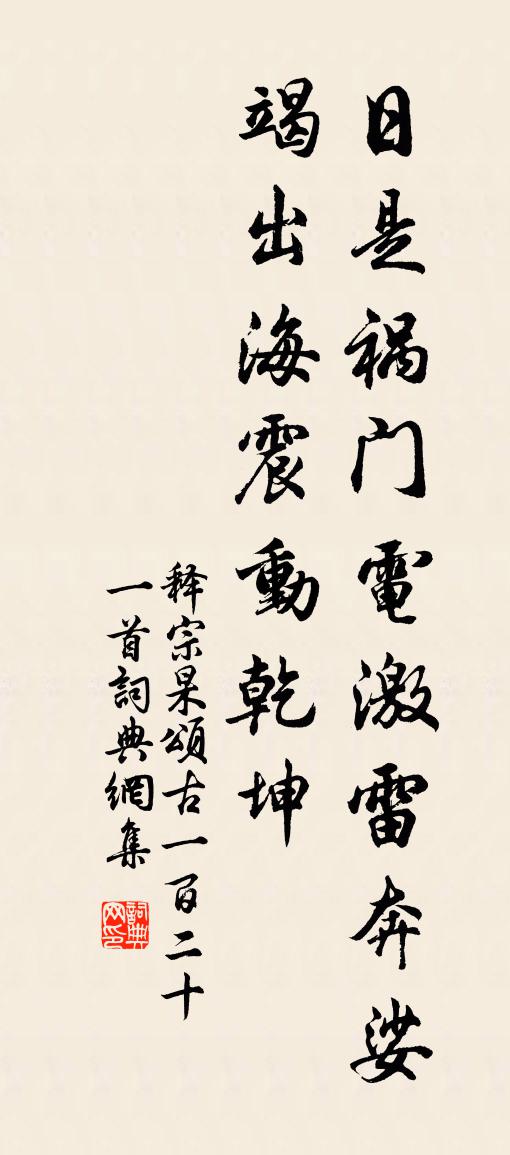 日是祸门電激雷奔娑
竭出海震動乾坤
释宗杲頌古一百二十
一首詞典網集
詞典
网印